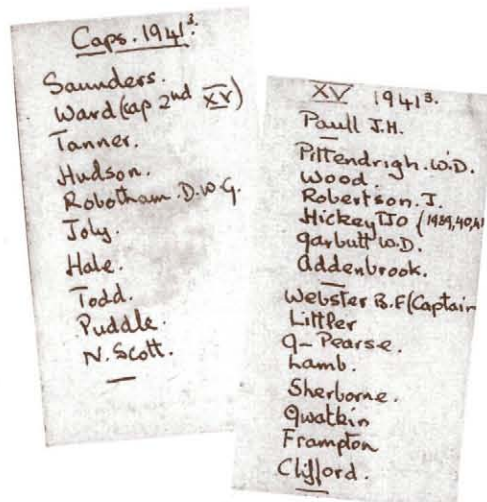 Caps. 1941³.
Saunders.
Ward (cap 2nd XV)
Tanner.
Hudson.
Robotham. D.W.G.
Joly.
Hale.
Todd.
Puddle.
N. Scott.
XV 1941³.
Paull J.H.
Pittendrigh. W.D.
Wood.
Robertson. J.
Hickey (1939,40,41
Garbutt W.D.
Addenbrook.
Webster B.F (Captain
Littler
G-Pearse.
Lamb.
Sherborne.
Gwatkin
Frampton
Clifford.